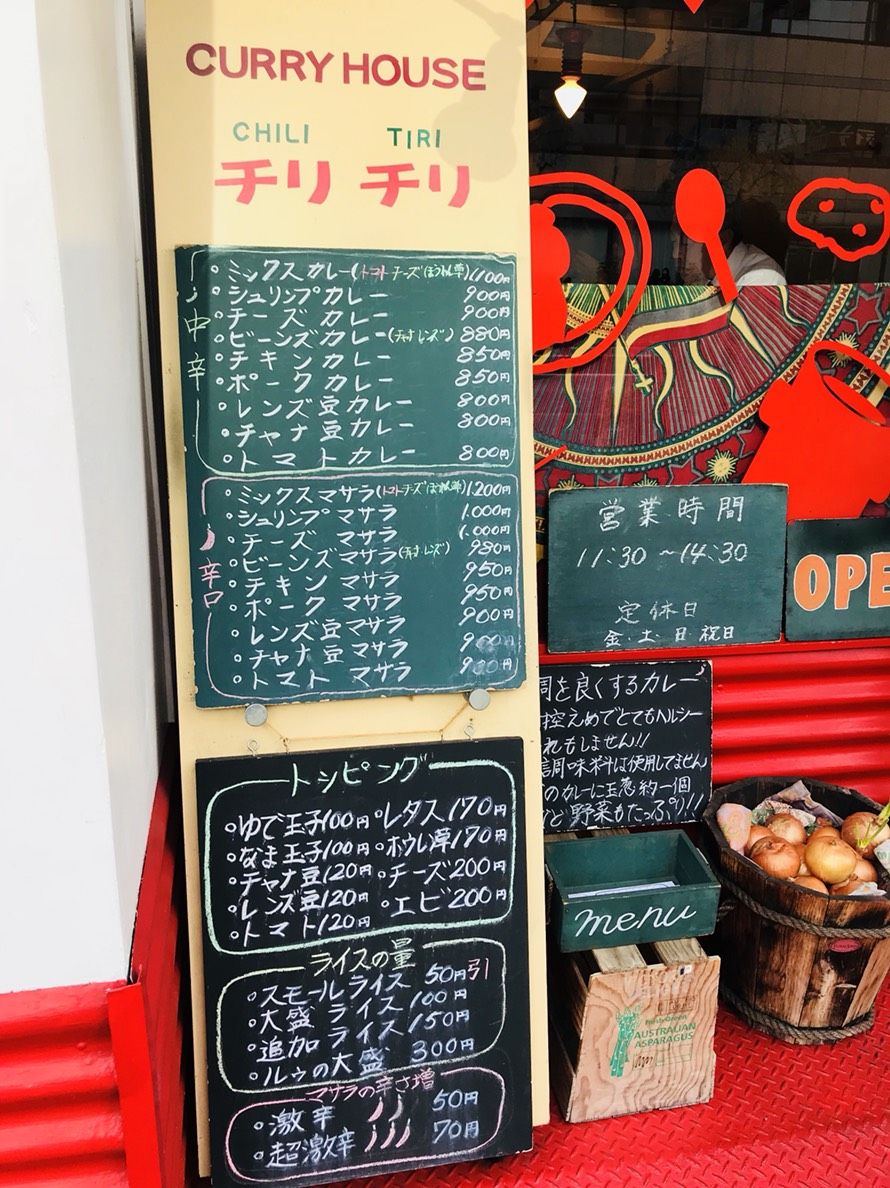 CURRY HOUSE
CHILI TIRI
チリ チリ
中辛
・ミックスカレー(トマト チーズ ほうれん草) 1,100円
・シュリンプカレー 900円
・チーズカレー 900円
・ビーンズカレー(チャナ レンズ) 880円
・チキンカレー 850円
・ポークカレー 850円
・レンズ豆カレー 800円
・チャナ豆カレー 800円
・トマトカレー 800円
辛口
・ミックスマサラ(トマト チーズ ほうれん草) 1,200円
・シュリンプマサラ 1,000円
・チーズマサラ 1,000円
・ビーンズマサラ(チャナ レンズ) 980円
・チキンマサラ 950円
・ポークマサラ 950円
・レンズ豆マサラ 900円
・チャナ豆マサラ 900円
・トマトマサラ 900円
トッピング
・ゆで玉子100円 ・レタス170円
・なま玉子100円 ・ホウレン草170円
・チャナ豆120円 ・チーズ200円
・レンズ豆120円 ・エビ200円
・トマト120円
ライスの量
・スモールライス 50円引
・大盛ライス 100円
・追加ライス 150円
・ルゥの大盛 300円
マサラの辛さ増
・激辛 50円
・超激辛 70円
営業時間
11:30〜14:30
定休日
金・土・日・祝日
OPE
を良くするカレー
控えめでとてもヘルシー
れもしません!!
調味料は使用してません
のカレーに玉葱約一個
ど野菜もたっぷり!!
menu
AUSTRALIAN
ASPARAGUS